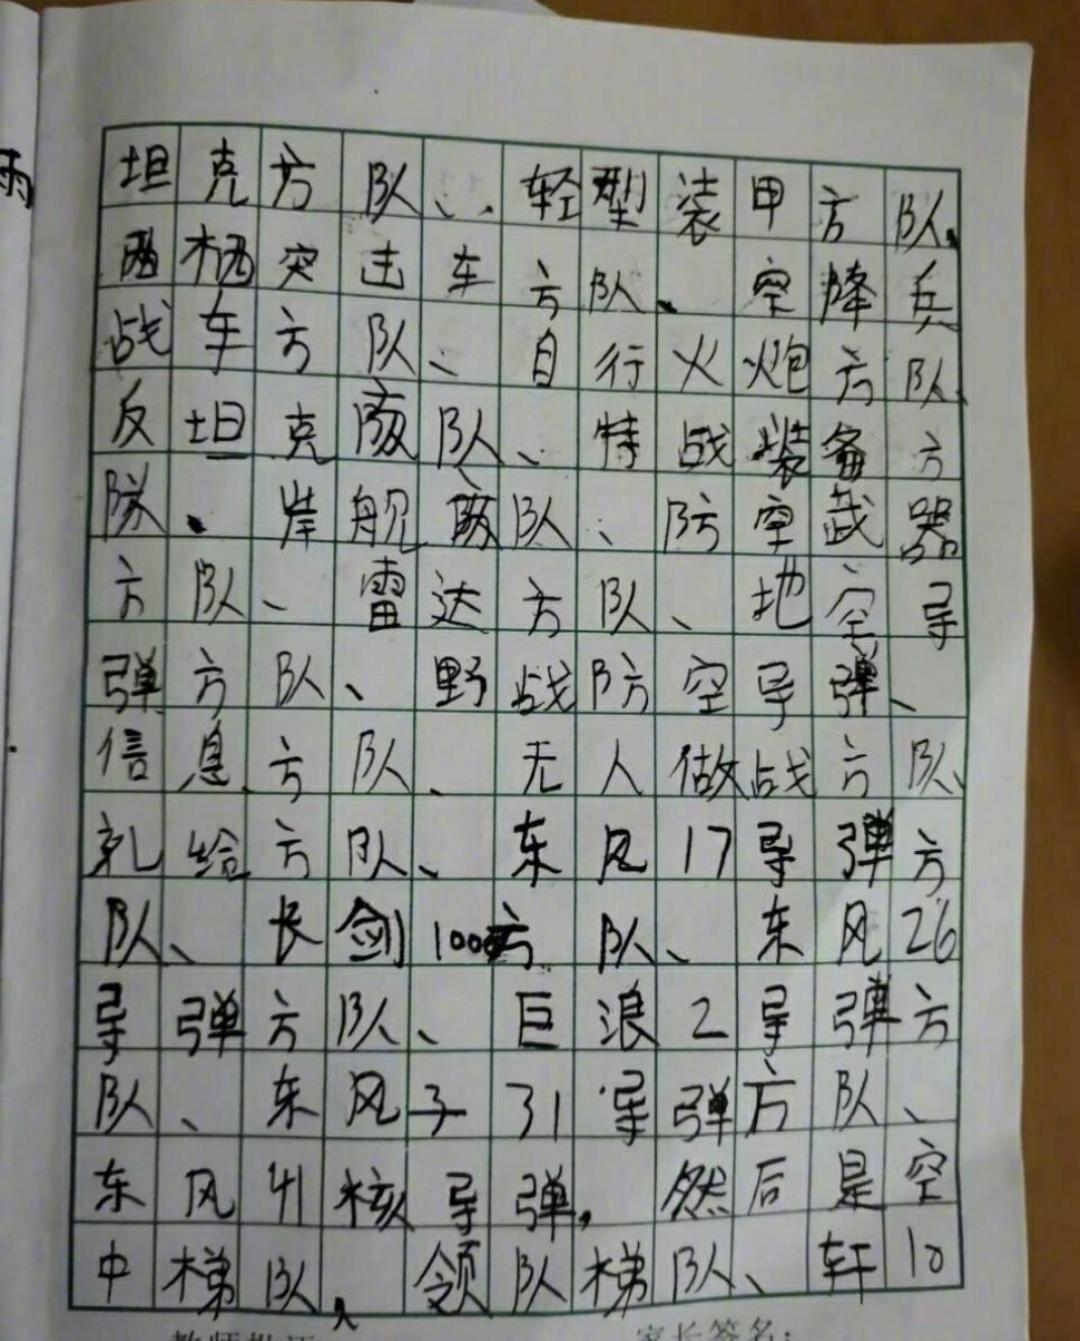 坦克方队、轻型装甲方队、
两栖突击车方队、空降兵
战车方队、自行火炮方队、
反坦克方队、特战装备方
队、岸舰方队、防空武器
方队、雷达方队、地空导
弹方队、野战防空导弹、
信息方队、无人做战方队、
礼给方队、东风17导弹方
队、长剑100方队、东风26
导弹方队、巨浪2导弹方
队、东风子31导弹方队、
东风41核导弹,然后是空
中梯队,领队梯队、轩10
家长签名:
雨